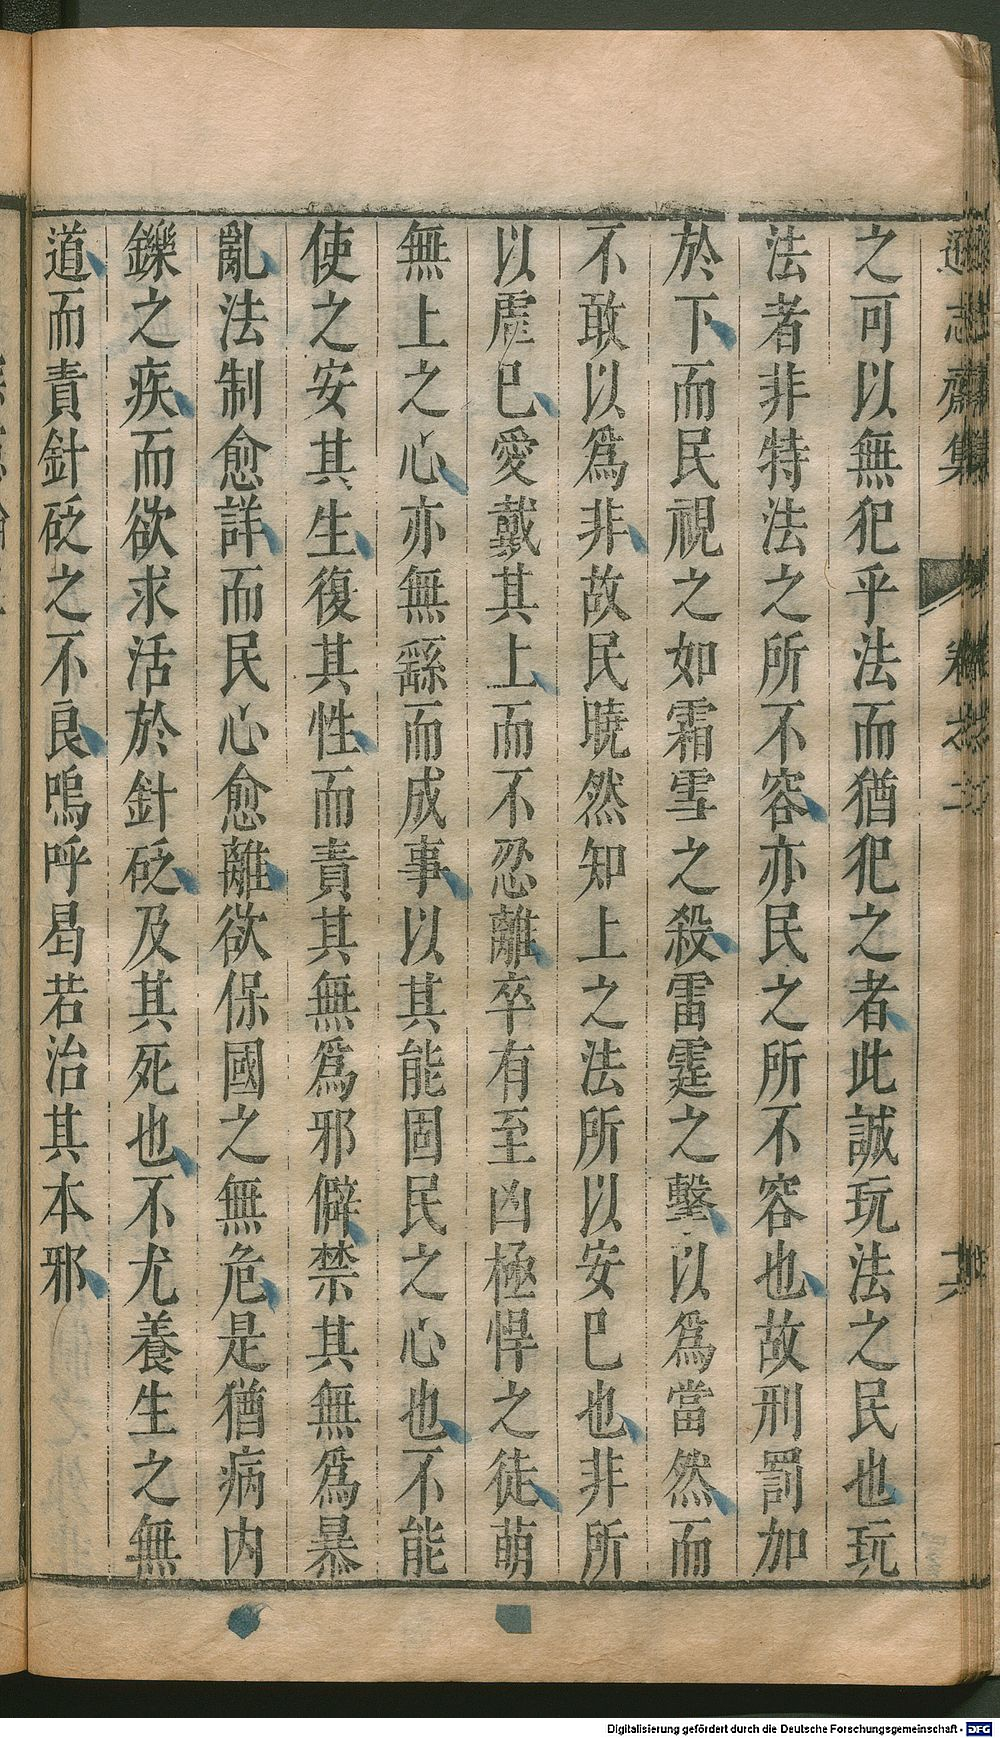 遜志齋集 卷之二
之可以無犯乎法而猶犯之者此誠玩法之民也玩
法者非特法之所不容亦民之所不容也故刑罰加
於下而民視之如霜雪之殺雷霆之擊以爲當然而
不敢以爲非故民曉然知上之法所以安巳也非所
以虐巳愛戴其上而不忍離卒有至凶極悍之徒萌
無上之心亦無繇而成事以其能固民之心也不能
使之安其生復其性而責其無爲邪僻禁其無爲暴
亂法制愈詳而民心愈離欲保國之無危是猶病内
鑠之疾而欲求活於針砭及其死也不尤養生之無
道而責針砭之不良嗚呼曷若治其本邪
Digitalisierung gefördert durch die Deutsche Forschungsgemeinschaft - DFG